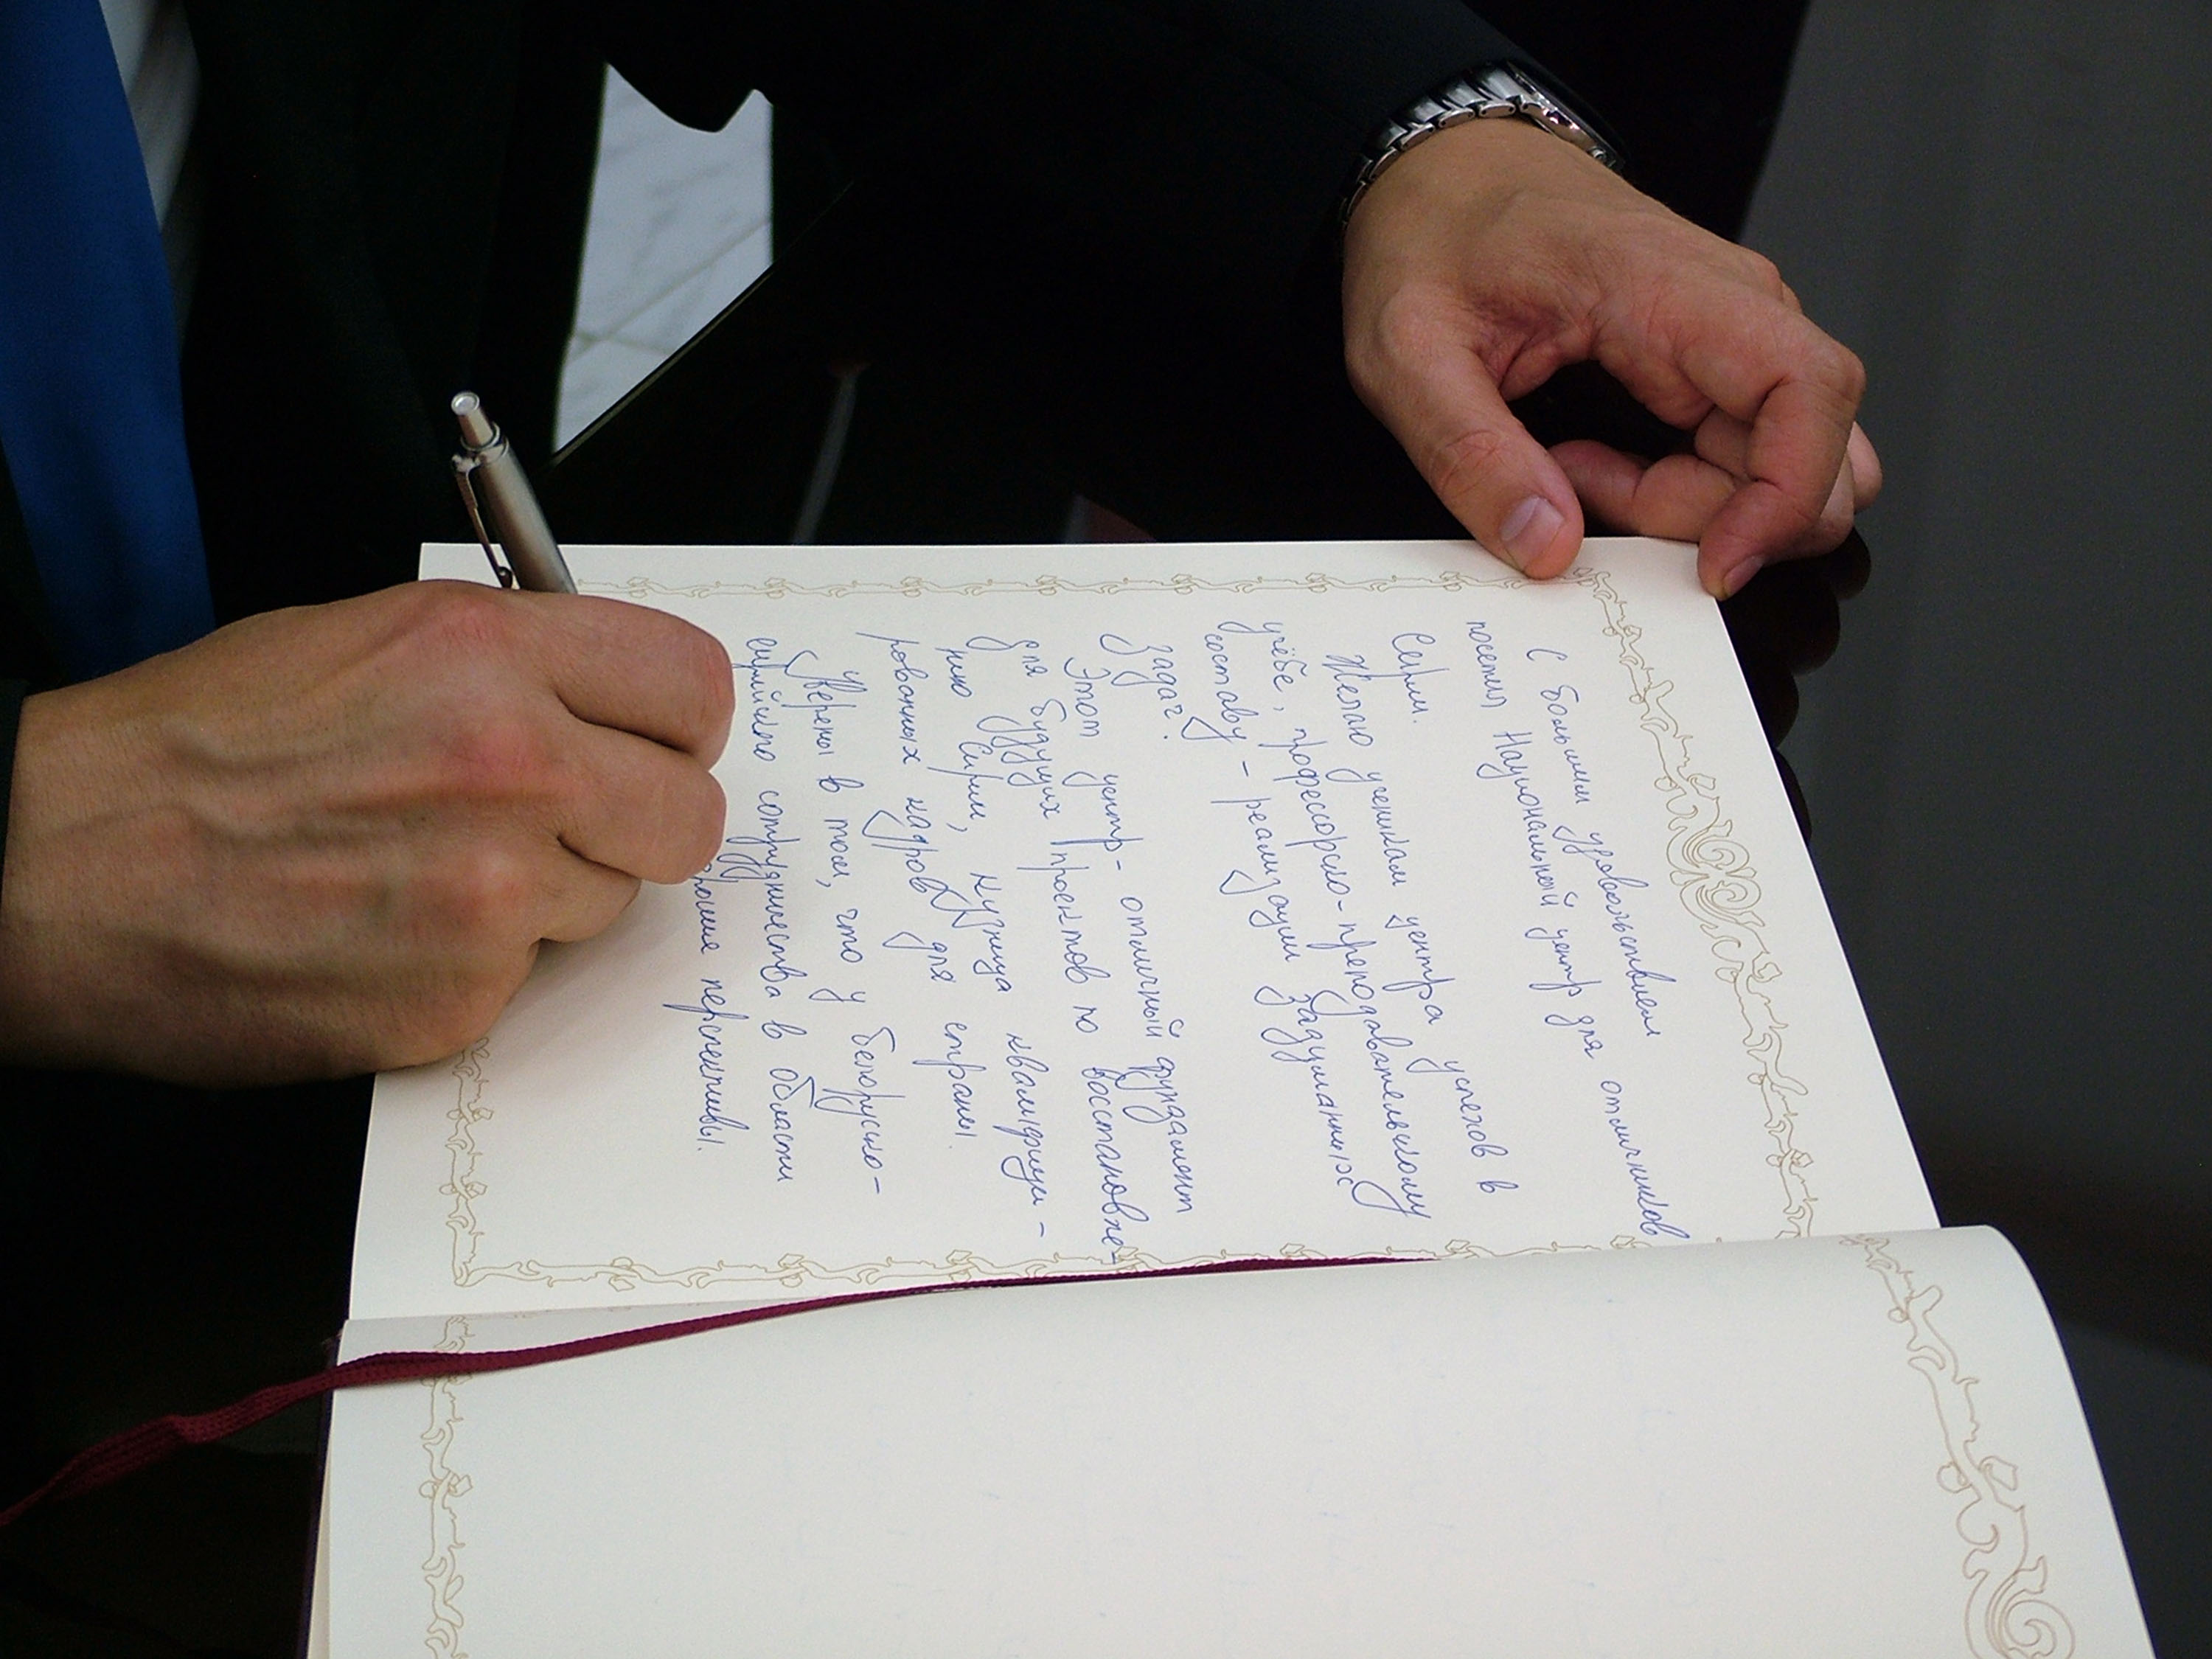 С большим удовольствием
посетил Национальный центр для отличников
Сирии.
Желаю ученикам центра успехов в
учёбе, профессорско-преподавательскому
составу - реализации задуманных
задач.
Этот центр - отличный фундамент
для будущих проектов по восстановле-
нию Сирии, кузница квалифици-
рованных кадров для страны.
Уверены в том, что у белорусско-
сирийского сотрудничества в области
перспективы.